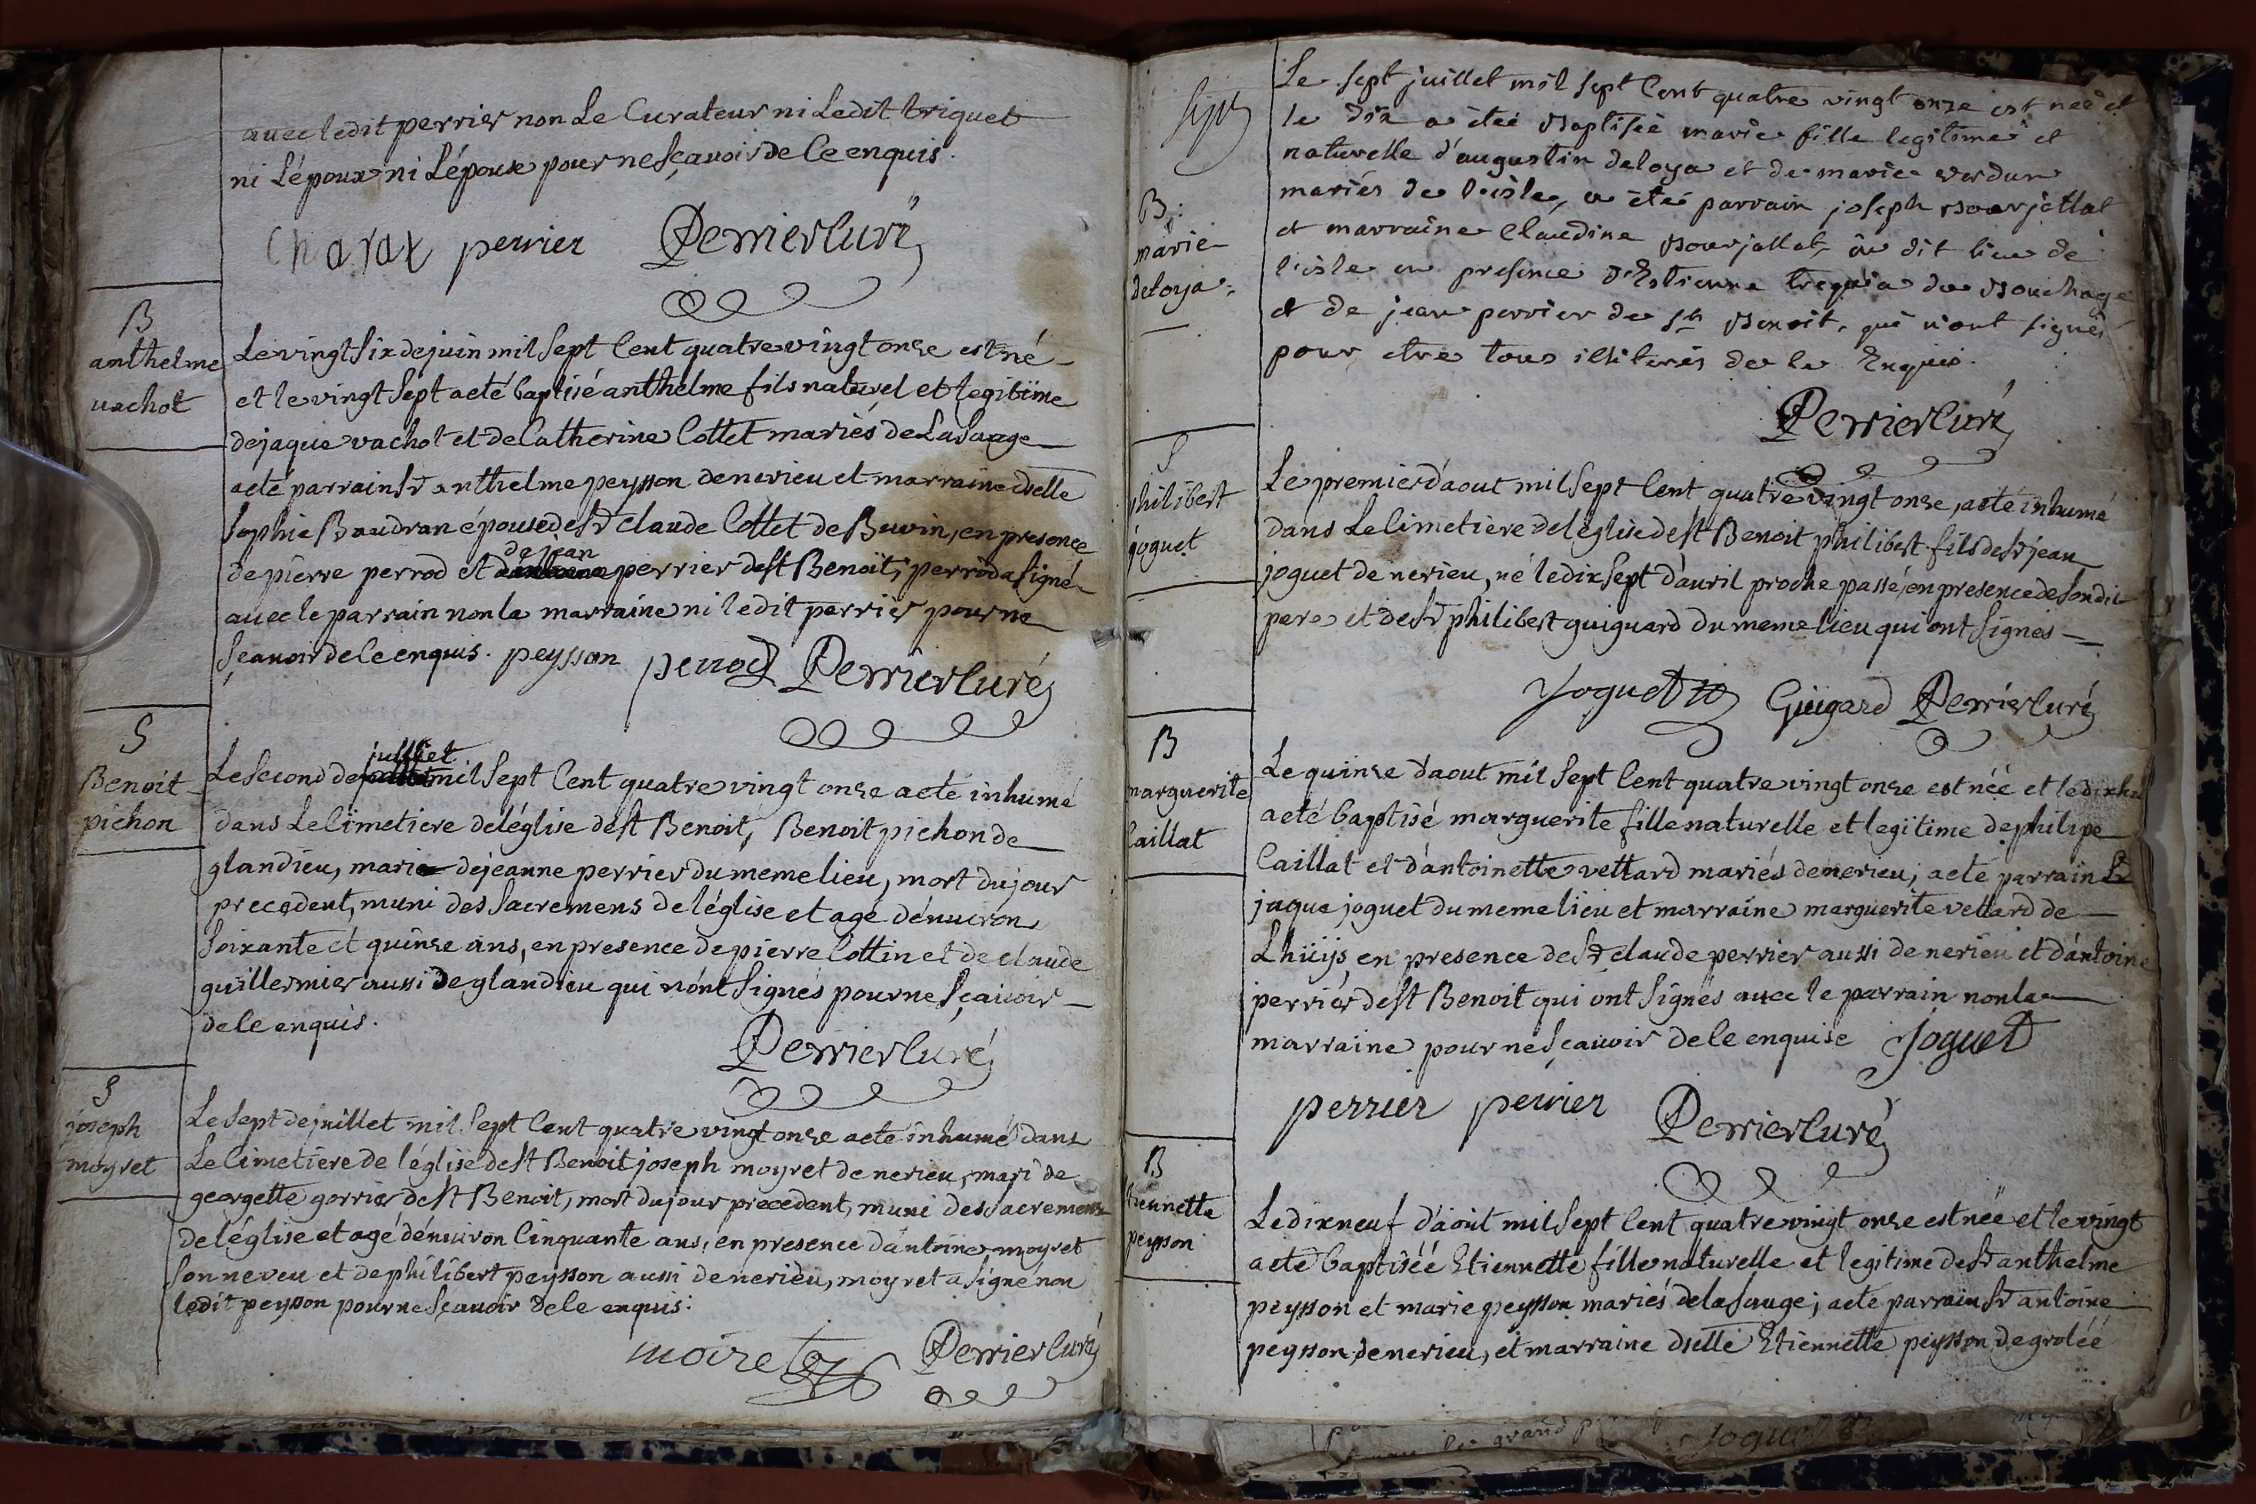 avec ledit perrier non Le Curateur ni Ledit triquet
ni L'époux ni L'épouse pour ne sçavoir de Ce enquis.
Charax perrier Perrier Curé
B
anthelme
vachot
Le vingt six de juin mil sept Cent quatre vingt onze est né
et le vingt sept a eté baptisé anthelme fils naturel et legitime
de jaque vachot et de Catherine Cottet mariés de La Sauge
a eté parrain Sr anthelme peysson de nerieu et marraine dselle
Sophie Baudran épouse de Sr Claude Cottet de Buvin, en presence
de jean
de pierre perrod et perrier de St Benoit; perrod a signé
avec le parrain non la marraine ni ledit perrier pour ne
sçavoir de Ce enquis. peysson perrod Perrier Curé
S
Benoit
pichon
juilliet
Le second de mil sept Cent quatre vingt onze a eté inhumé
dans Le Cimetiere de l'église de St Benoit, Benoit pichon de
glandieu, mari de jeanne perrier du meme lieu, mort du jour
precedent, muni des sacremens de l'église et agé d'énviron
soixante et quinze ans, en presence de pierre Cottin et de claude
guillermier aussi de glandieu qui n'ont signés pour ne sçavoir
de Ce enquis.
Perrier Curé
S
joseph
moyret
Le sept de juillet mil sept Cent quatre vingt onze a eté inhumé dans
Le Cimetiere de l'église de St Benoit joseph moyret de nerieu, mari de
georgette gorrier de St Benoit, mort du jour precedent, muni des sacremens
de l'église et agé d'énviron Cinquante ans, en presence d'antoine moyret
son neveu et de philibert peysson aussi de nerieu, moyret a signé non
ledit peysson pour ne sçavoir de Ce enquis.
moiret Perrier Curé
B:
marie
deloya
Le sept juillet mil sept Cent quatre vingt onze est neé et
le dix a étée Baptisée marie fille legitime et
naturelle d'augustin deloya et de marie verdun
mariés de l'isle, a été parrain joseph Bourjallat
et marraine Claudine Bourjallat, au dit lieu de
l'isle en presence d'Estienne trequia du Bouchage
et de jean perrier de St Benoit, qui n'ont signés
pour etre tous illiterés de Ce Enquis.
Perrier Curé
S
philibert
joguet
Le premier d'aout mil sept Cent quatre vingt onze, a eté inhumé
dans Le Cimetiere de l'église de St Benoit philibert fils de Sr jean
joguet de nerieu, né le dix sept d'avril proche passé, en presence de son dit
pere et de Sr philibert guiguard du meme lieu qui ont signés
Joguet Guigard Perrier Curé
B
marguerite
Caillat
Le quinze d'aout mil sept Cent quatre vingt onze est née et le dix hui
a eté baptisé marguerite fille naturelle et legitime de philipe
Caillat et d'antoinette vettard mariés de nerieu; a eté parrain Sr
jaque joguet du meme lieu et marraine marguerite vettard de
Lhüijs, en presence de Sr claude perrier aussi de nerieu et d'antoine
perrier de St Benoit qui ont signés avec le parrain non la
marraine pour ne sçavoir de Ce enquise Joguet
perrier perrier Perrier Curé
B
tiennette
peysson
Le dix neuf d'aóut mil sept Cent quatre vingt onze est née et le vingt
a eté baptisée Etiennette fille naturelle et legitime de Sr anthelme
peysson et marie peysson mariés de la Sauge; a eté parrain Sr antoine
peysson de nerieu, et marraine dselle Etiennette peysson de grolée